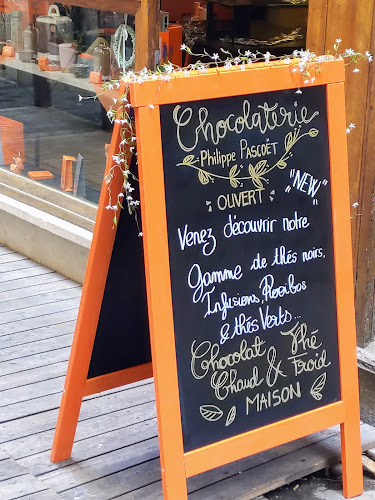 Chocolaterie
Philippe PASCOËT
OUVERT
"NEW"
Venez découvrir notre
Gamme de thés noirs,
Infusions, Rooibos
& thés Verts...
Chocolat & Thé
Chaud Froid
MAISON